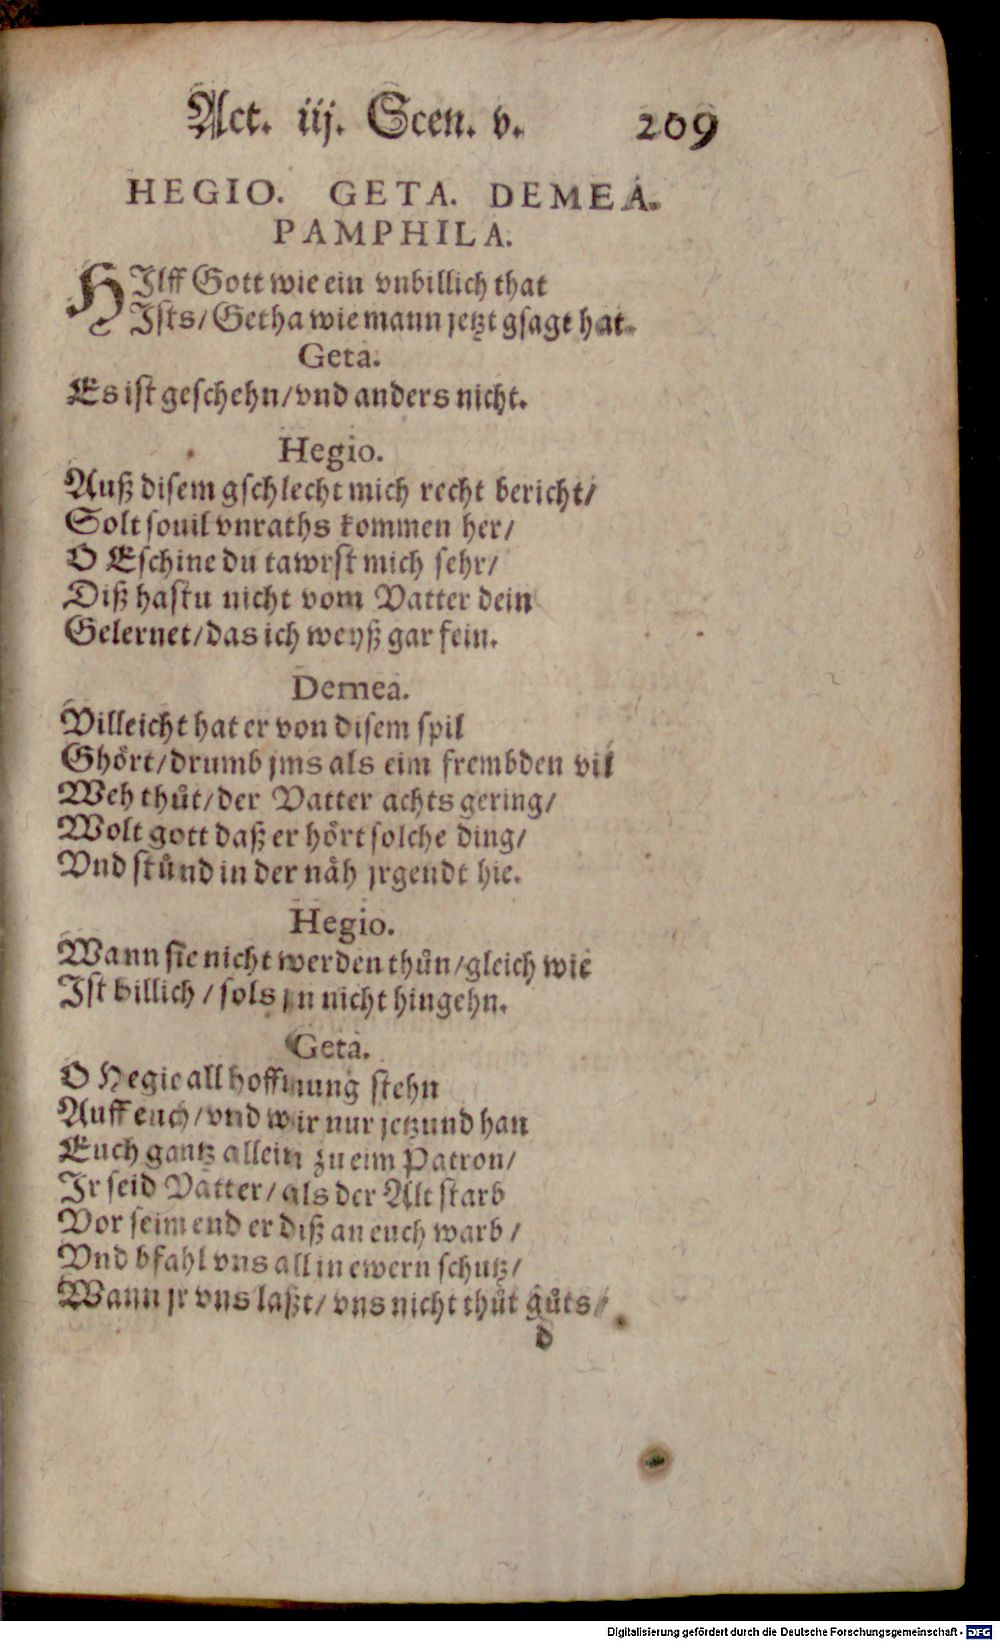 Act. iij. Scen. v. 209
HEGIO. GETA. DEMEA.
PAMPHILA.
HIlff Gott wie ein vnbillich that
Ists/ Getha wie mann jetzt gsagt hat.
Geta.
Es ist geschehn/ vnd anders nicht.
Hegio.
Auß disem gschlecht mich recht bericht/
Solt souil vnraths kommen her/
O Eschine du tawrst mich sehr/
Diß hastu nicht vom Vatter dein
Gelernet/ das ich weyß gar fein.
Demea.
Villeicht hat er von disem spil
Ghört/ drumb jms als eim frembden vil
Weh thůt/ der Vatter achts gering/
Wolt gott daß er hört solche ding/
Vnd stůnd in der näh jrgendt hie.
Hegio.
Wann sie nicht werden thůn/ gleich wie
Ist billich/ sols jn nicht hingehn.
Geta.
O Hegio all hoffnung stehn
Auff euch/ vnd wir nur jetzund han
Euch gantz allein zu eim Patron/
Ir seid Vatter/ als der Alt starb
Vor seim end er diß an euch warb/
Vnd bfahl vns all in ewern schutz/
Wann jr vns laßt/ vns nicht thůt gůts/
d
Digitalisierung gefördert durch die Deutsche Forschungsgemeinschaft - DFG